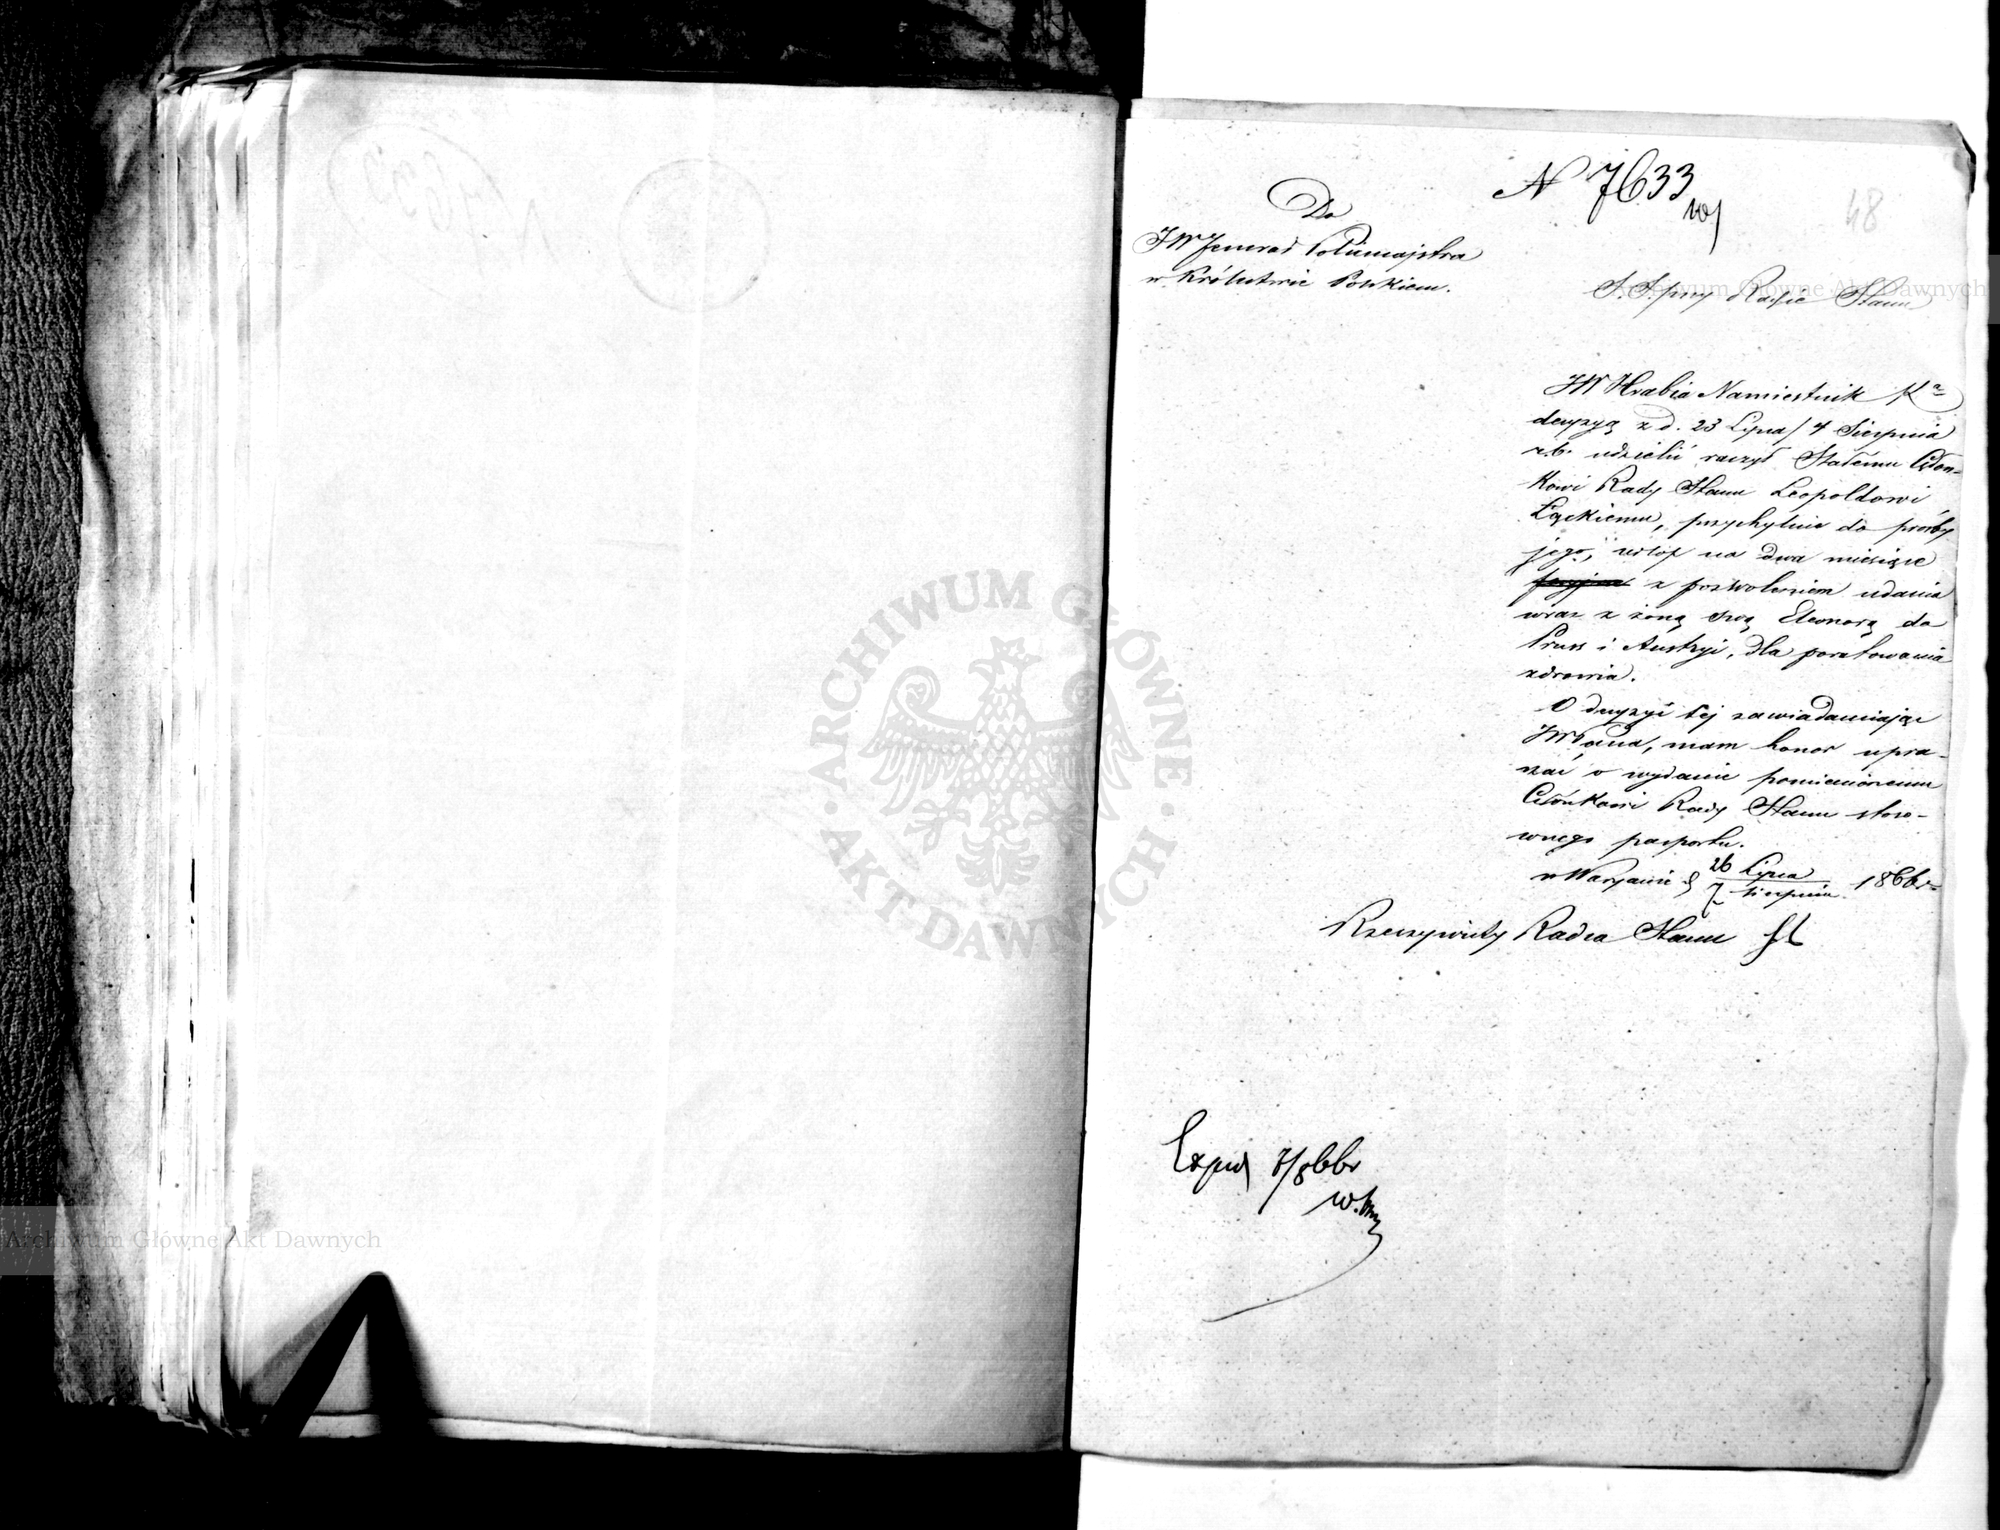 N 7633
48
Do
JW Jenerał Policmajstra
w Królestwie Polskiem.
S. S. przy Radzie Stanu
JW Hrabia Namiestnik
decyzyą z d. 23 Lipca / 4 Sierpnia
r.b. udzielić raczył Stałemu Człon-
kowi Rady Stanu Leopoldowi
Łąckiemu, przychylnie do prośby
jego, urlop na dwa miesiące
z pozwoleniem udania
wraz z żoną swą Eleonorą do
Pruss i Austryi, dla poratowania
zdrowia.
O decyzyi tej zawiadamiając
JWPana, mam honor upra-
szać o wydanie pomienionemu
Członkowi Rady Stanu stoso-
wnego pasportu.
w Warszawie d 26 Lipca / 7 Sierpnia 1866 r
Rzeczywisty Radca Stanu
Exped 7/8 66 r
Archiwum Główne Akt Dawnych
ARCHIWUM GŁÓWNE · AKT DAWNYCH ·
Archiwum Główne Akt Dawnych